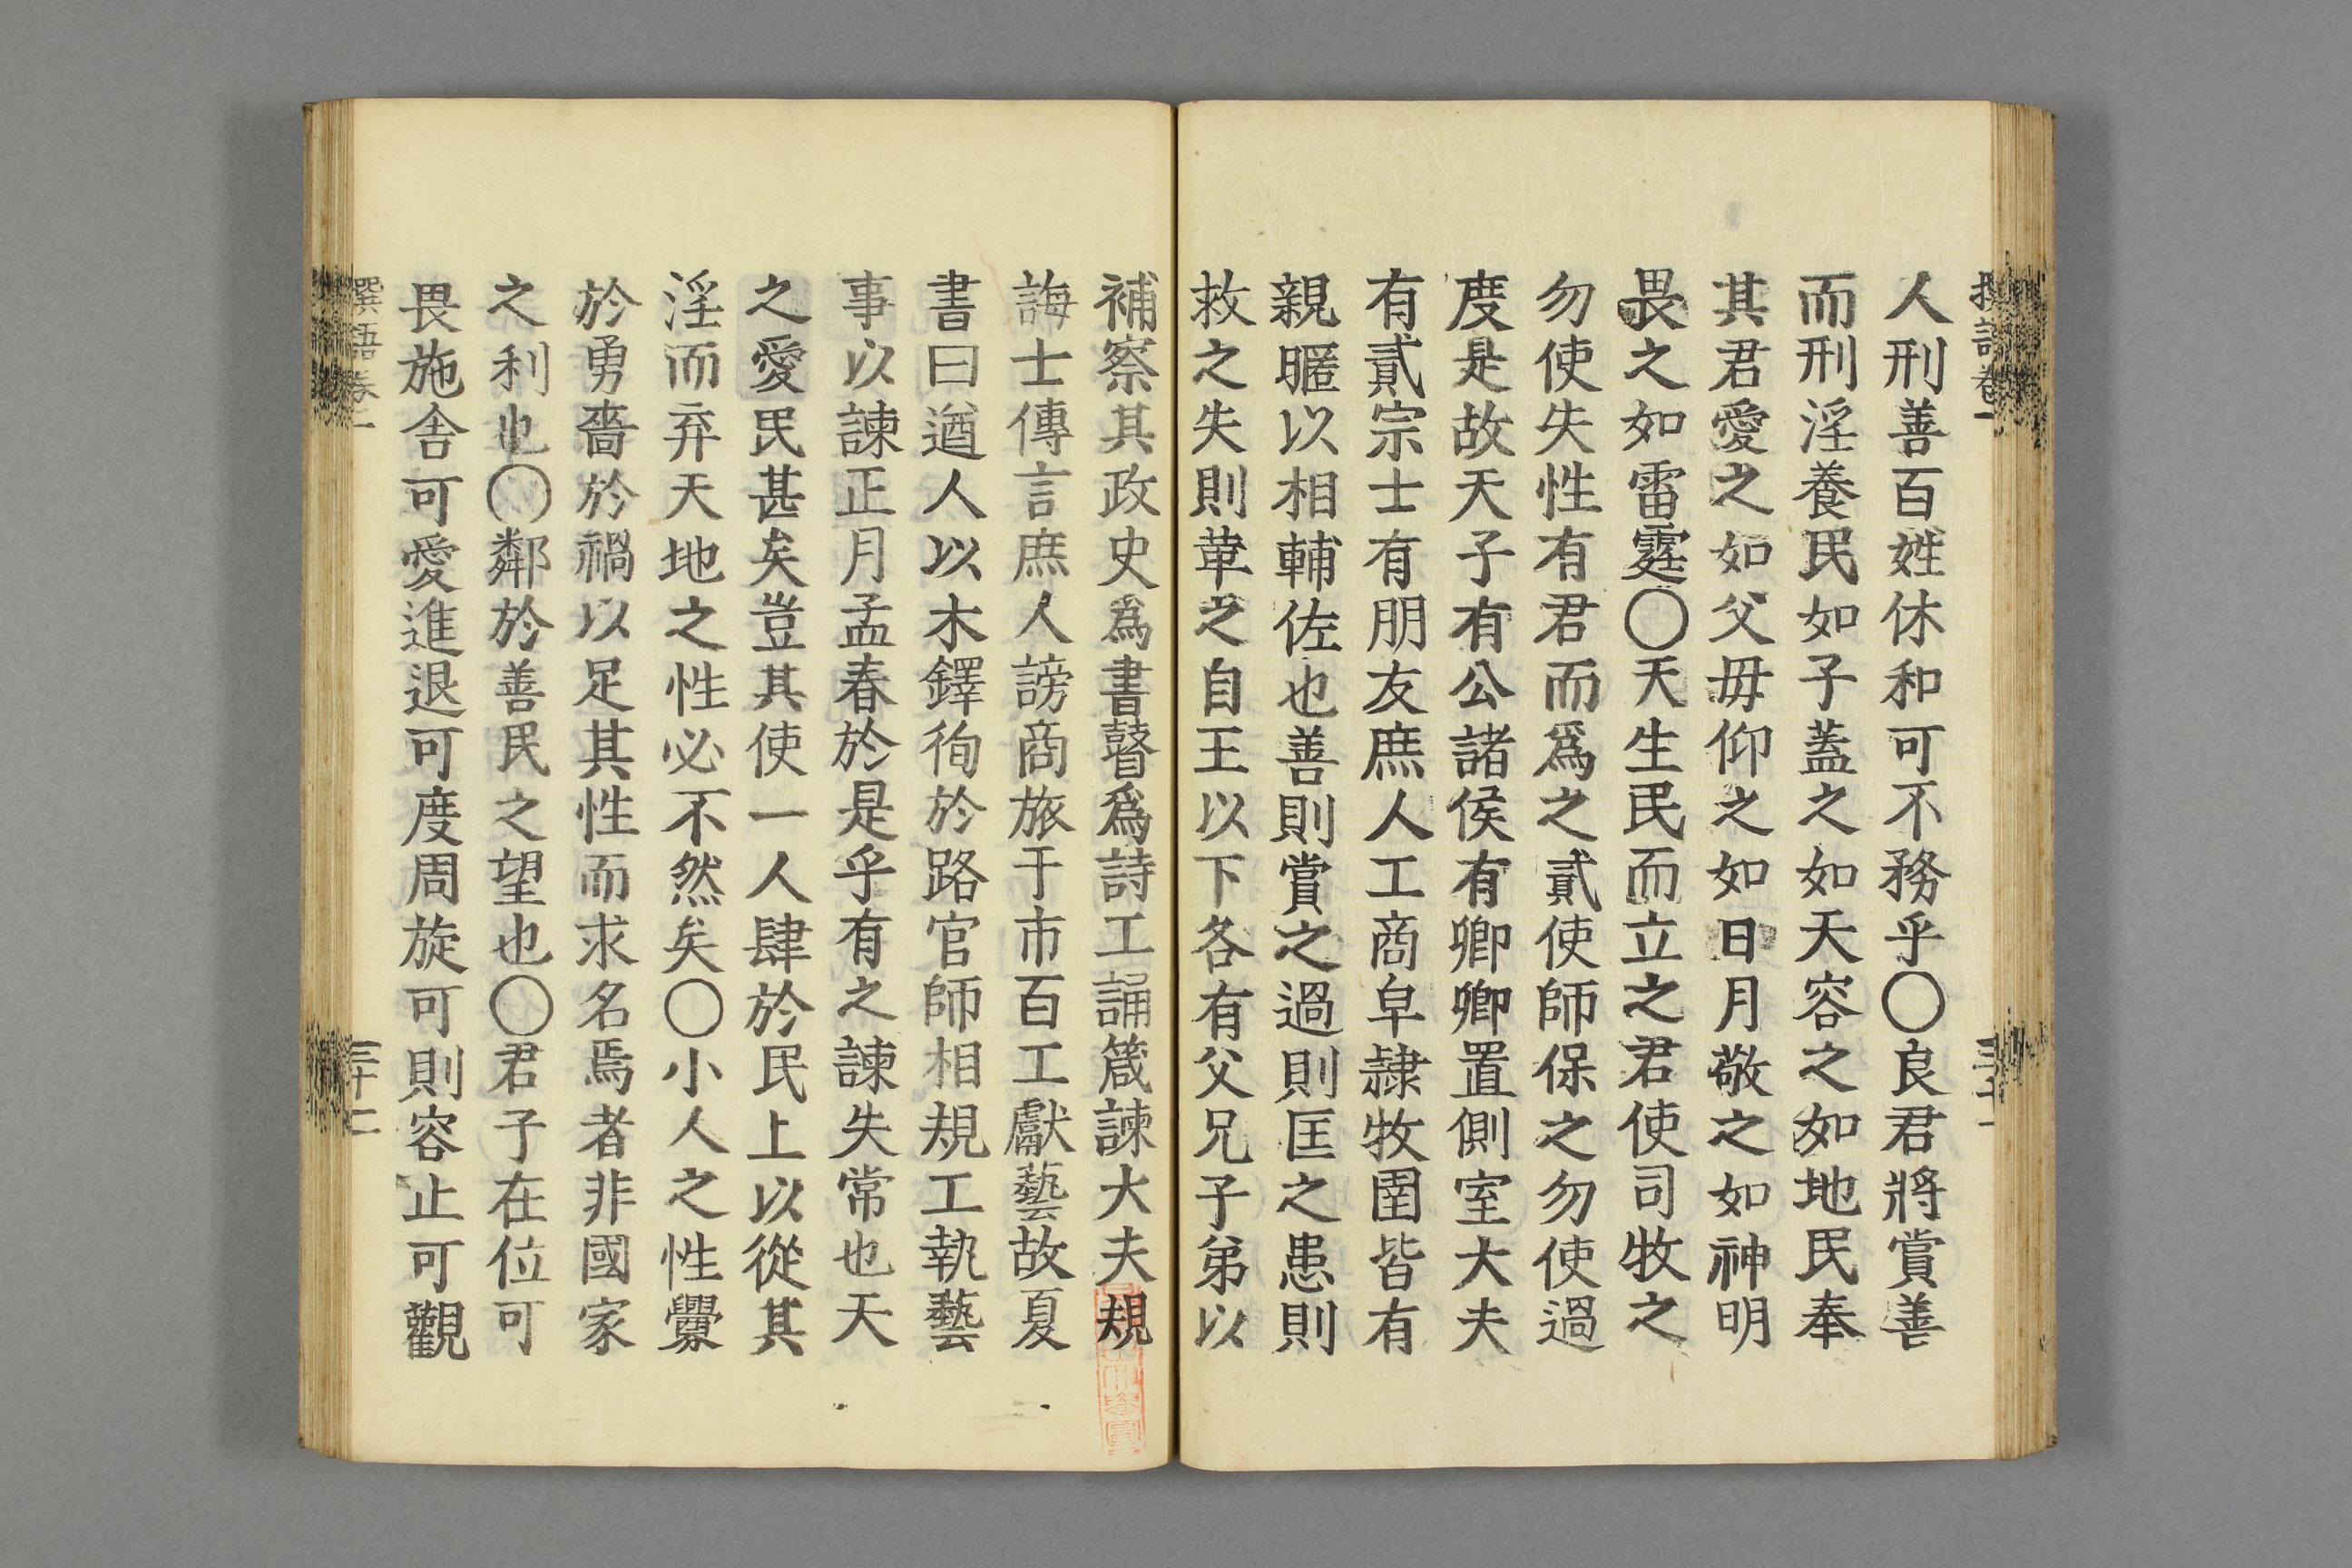 人刑善百姓休和可不務乎〇良君將賞善
而刑淫養民如子蓋之如天容之如地民奉
其君愛之如父毋仰之如日月敬之如神明
畏之如雷霆〇天生民而立之君使司牧之
勿使失性有君而爲之貳使師保之勿使過
度是故天子有公諸侯有卿卿置側室大夫
有貳宗士有朋友庶人工商皁隷牧圉皆有
親暱以相輔佐也善則賞之過則匡之患則
救之失則革之自王以下各有父兄子弟以
補察其政史爲書瞽爲詩工誦箴諫大夫規
誨士傳言庶人謗商旅于市百工獻藝故夏
書曰遒人以木鐸徇於路官師相規工執藝
事以諫正月孟春於是乎有之諫失常也天
之愛民甚矣豈其使一人肆於民上以從其
淫而弃天地之性必不然矣〇小人之性釁
於勇嗇於禍以足其性而求名焉者非國家
之利也〇鄰於善民之望也〇君子在位可
畏施舍可愛進退可度周旋可則容止可觀
撰語卷二
三十二